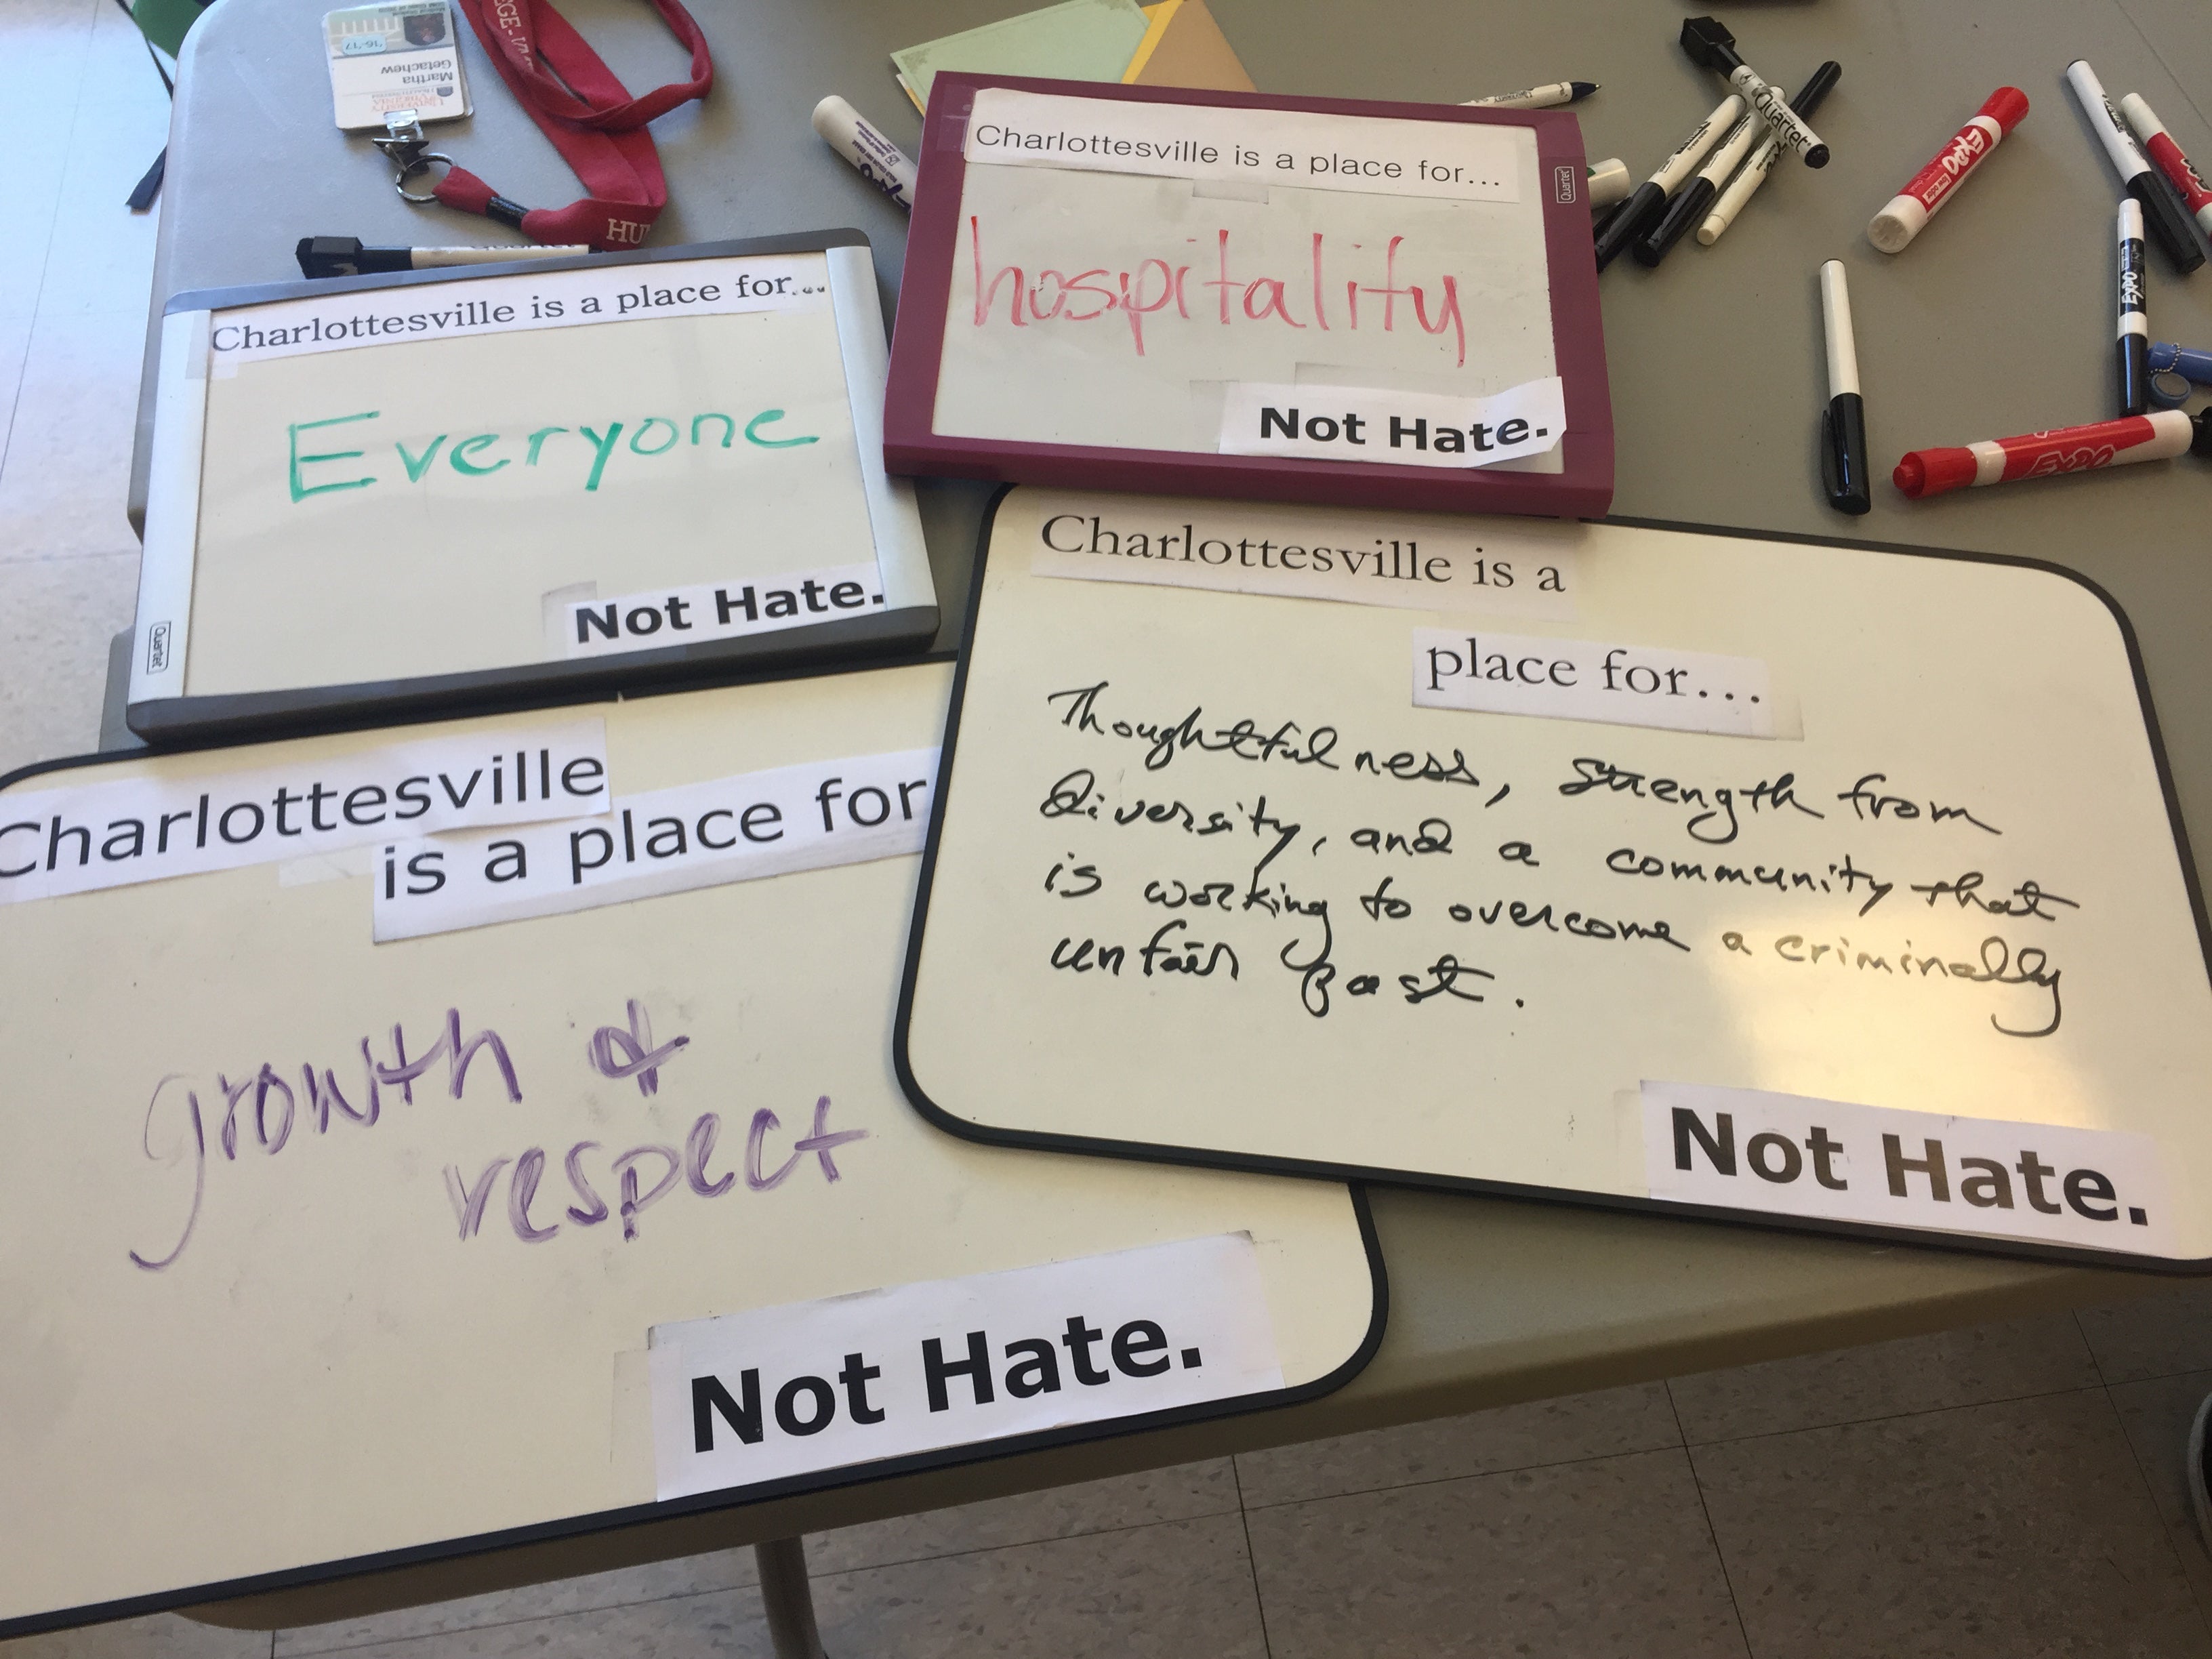 '16-'17
Martha
Getachew
UNIVERSITY
VIRGINIA
HU
EXPO
Quartet
EXPO
EXPO
EXPO
Charlottesville is a place for...
hospitality
Not Hate.
Quartet
Charlottesville is a place for...
Everyone
Not Hate.
Quartet
Charlottesville is a
place for...
Thoughtfulness, strength from
diversity, and a community that
is working to overcome a criminally
unfair past.
Not Hate.
Charlottesville
is a place for
growth &
respect
Not Hate.